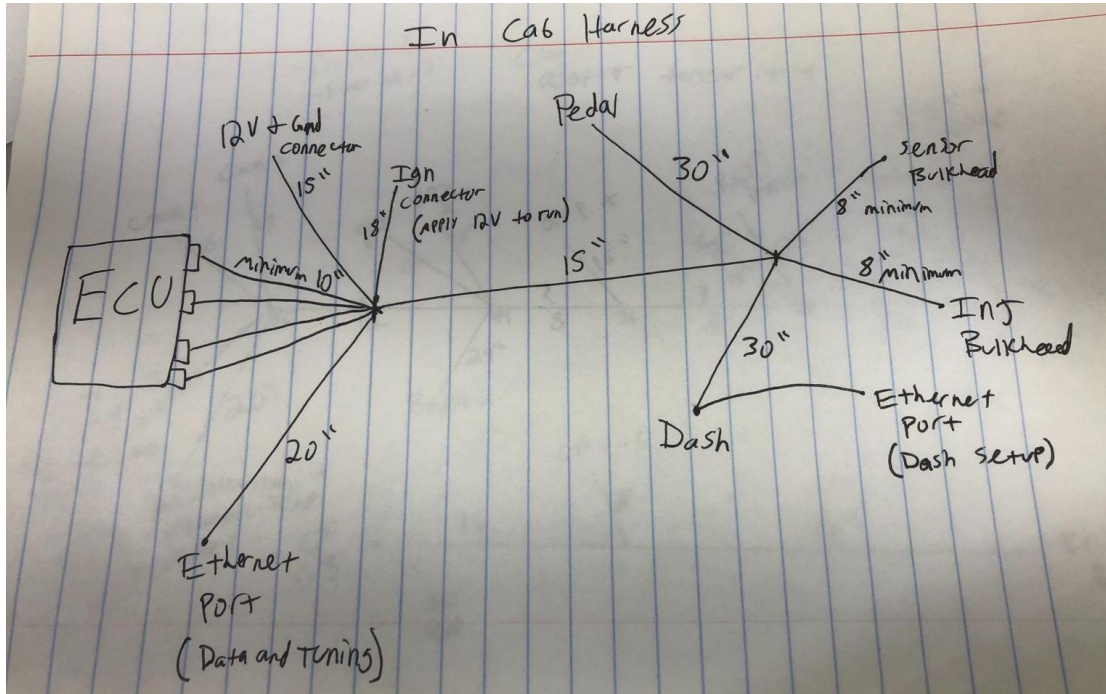 In Cab Harness
12V + Gnd
connector
15"
Ign
connector
(Apply 12V to run)
18"
Pedal
30"
sensor
Bulkhead
8" minimum
ECU
minimum 10"
15"
8" minimum
Inj
Bulkhead
30"
Dash
Ethernet
Port
(Dash setup)
20"
Ethernet
Port
(Data and Tuning)